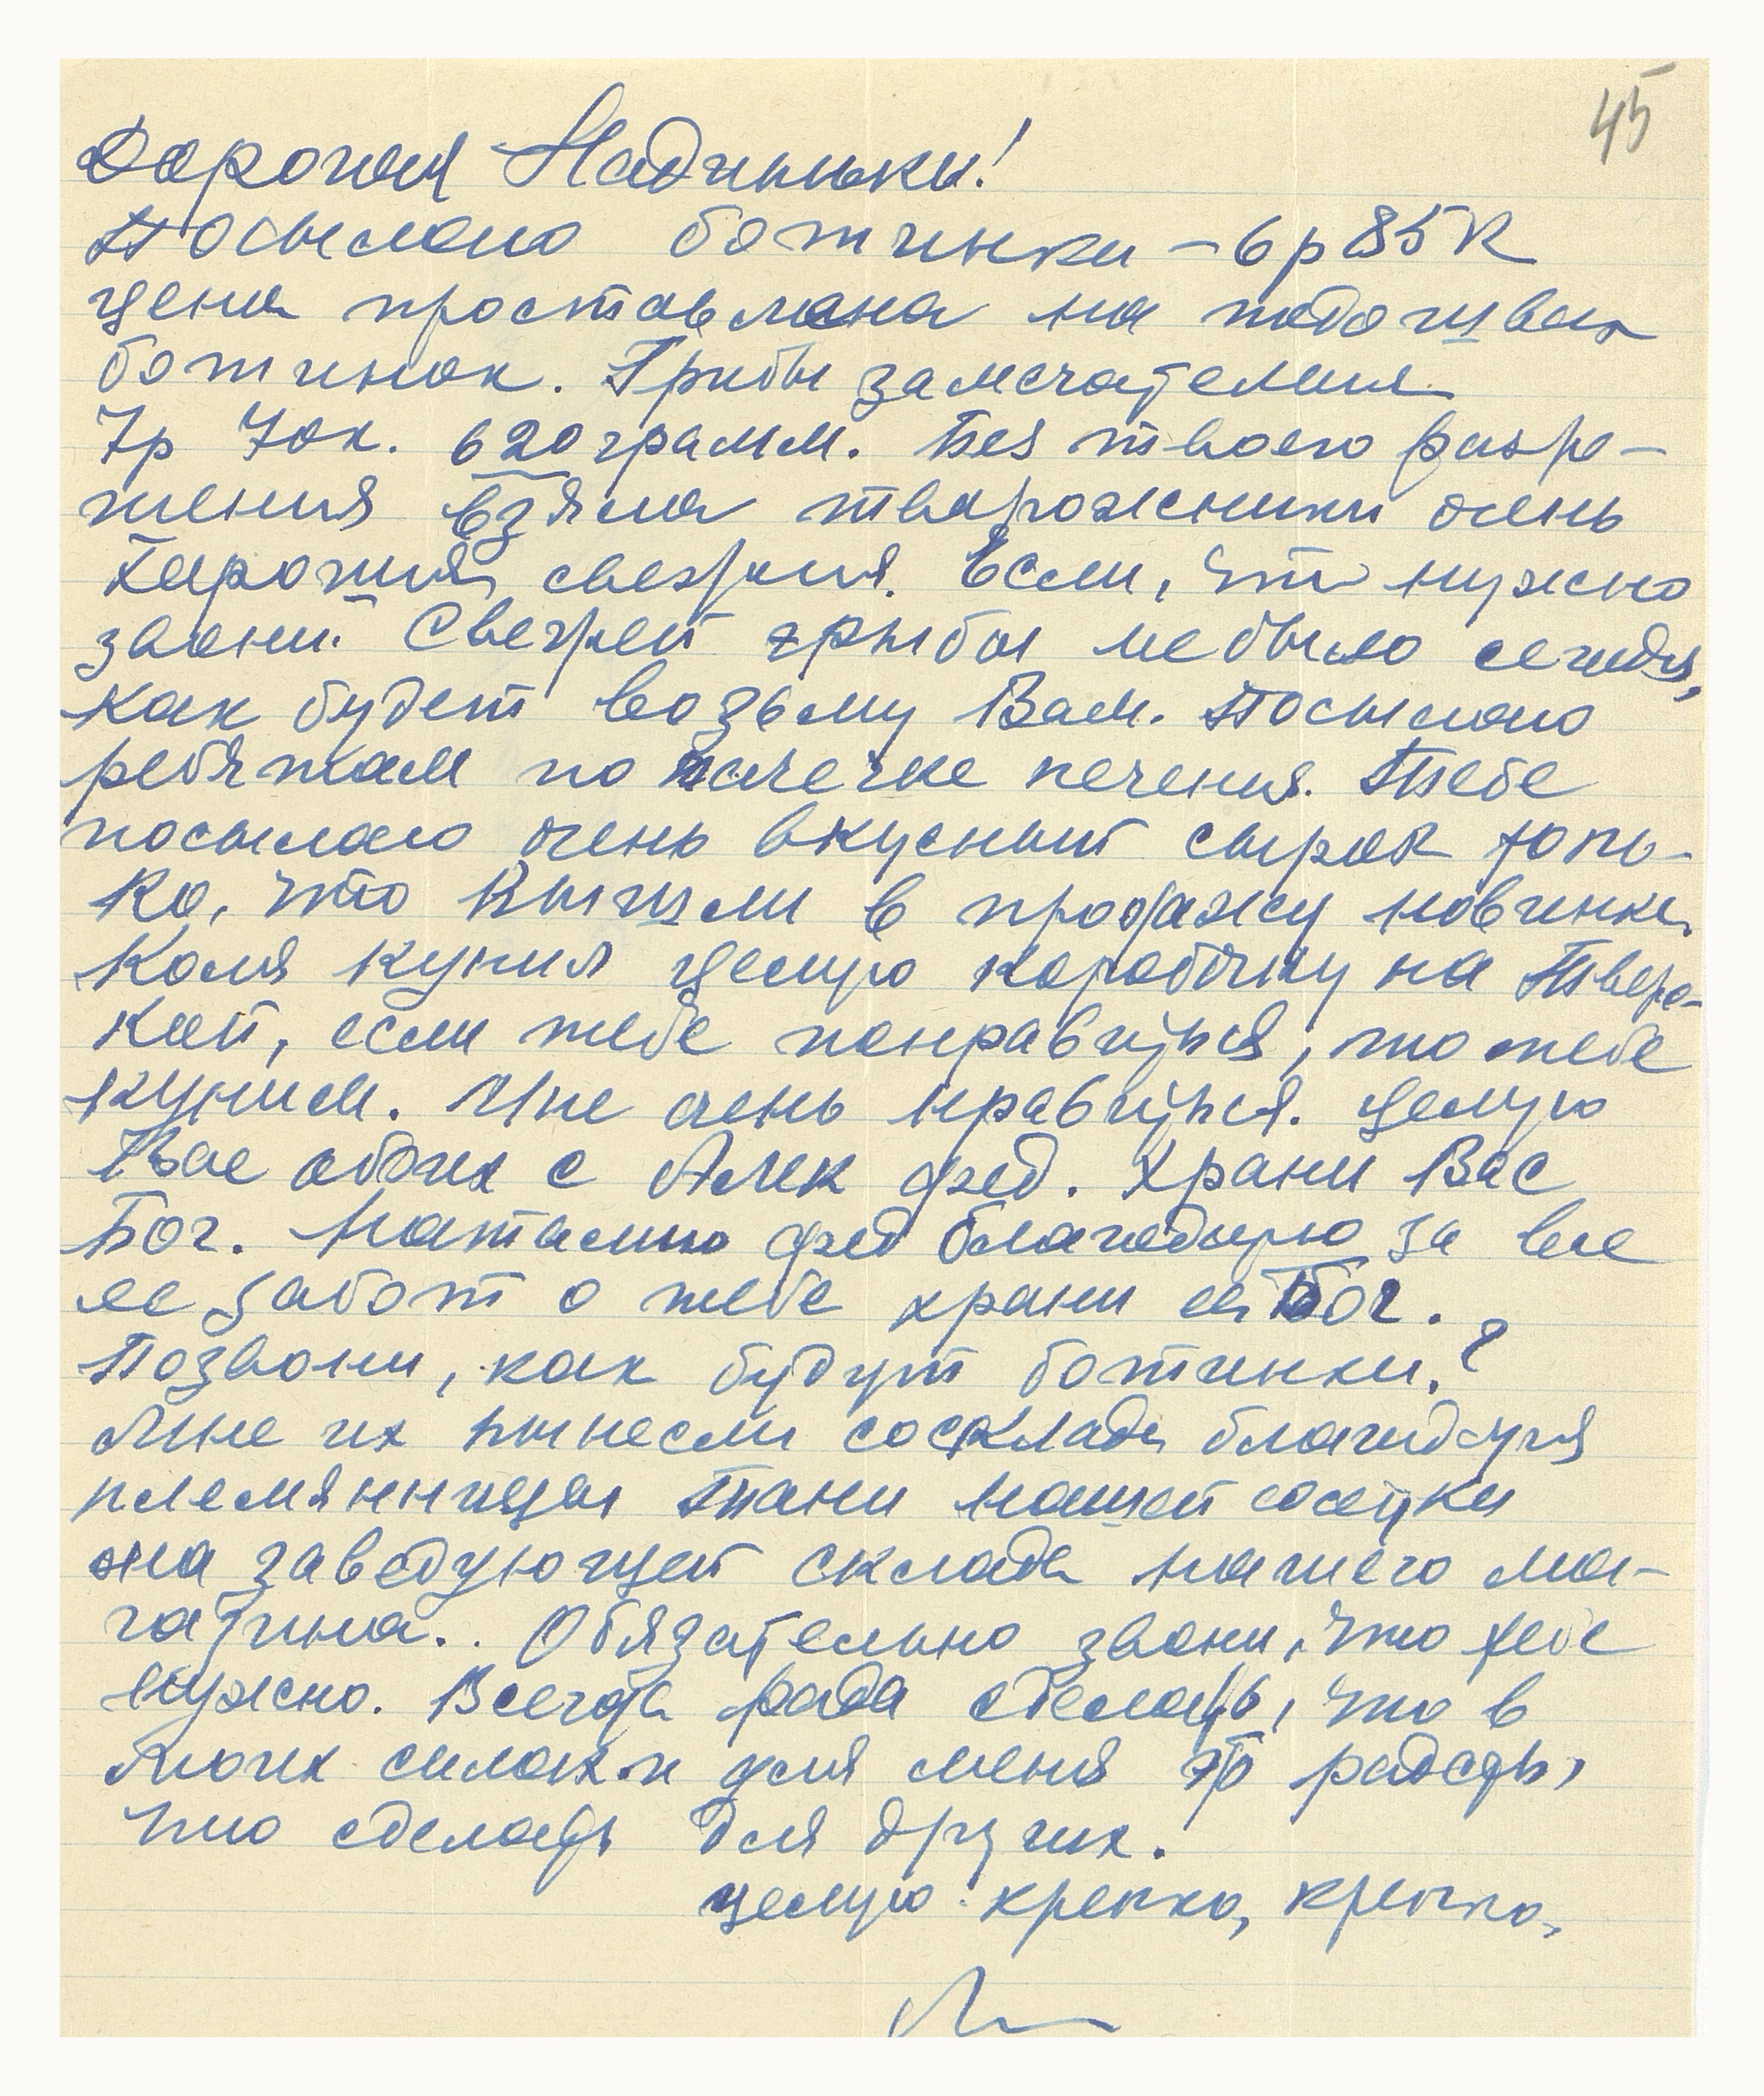 45
Дорогая Надинька!
Посылаю ботинки – 6р 85к
цена проставлена на подошвах
ботинок. Грибы замечателия
7р 70к. 620 грамм. Без твоего разре-
шения взяла творожники очень
хорошия свежия. Если, что нужно
звони. Свежей рыбы не было сегодя,
как будет возьму Вам. Посылаю
ребяткам по пачечке печения. Тебе
посылаю очень вкусный сырок толь-
ко, что вышли в продажу новинка.
Коля купил целую коробочку на Тверс-
кой, если тебе понравится, то тебе
купим. Мне очень нравится. Целую
Вас обоих с Алек фед. Храни Вас
Бог. Наталию фед благодарю за все
ее забот о тебе храни её Бог.
Позвони, как будут ботинки?
Мне их вынесли со склада благодаря
племянницы Тани нашей соседки
она заведующей склада нашего ма-
газина.. Обязательно звони, что тебе
нужно. Всегда рада сделать, что в
моих силах и для меня это радость,
что сделать для других.
целую крепко, крепко,